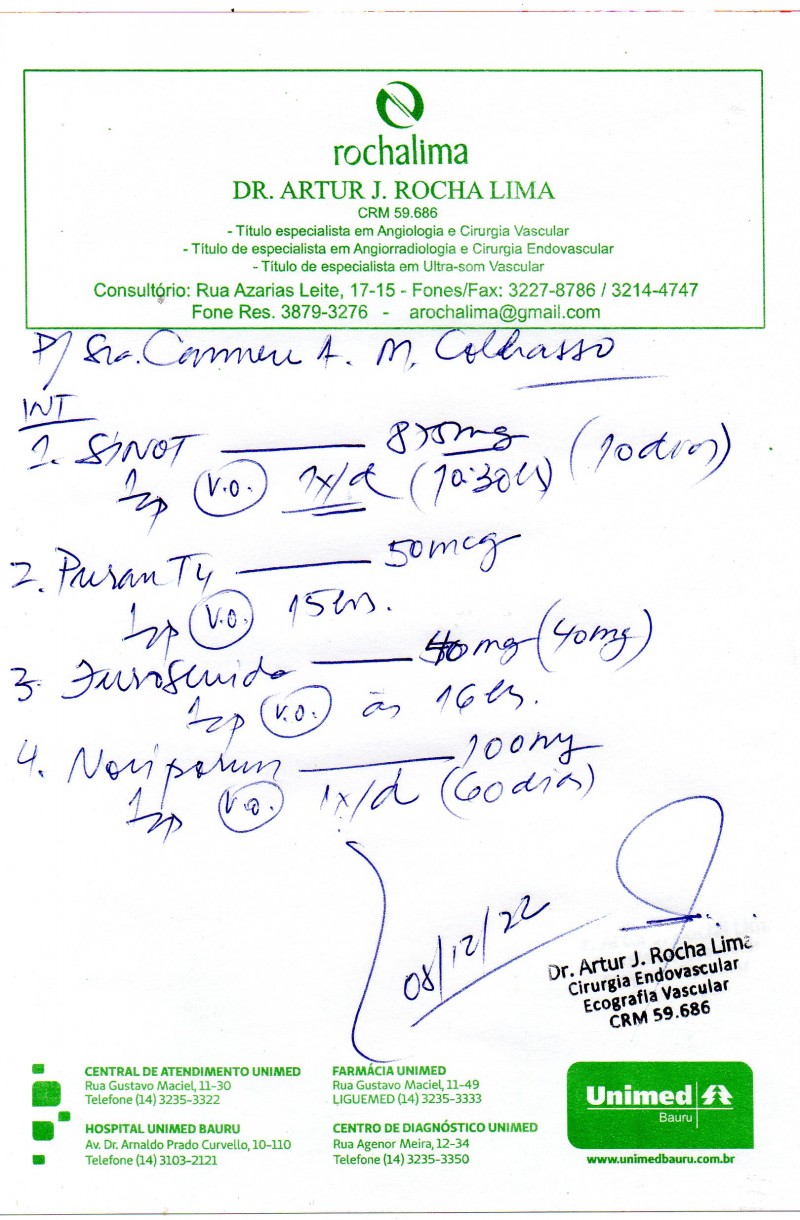 rochalima
DR. ARTUR J. ROCHA LIMA
CRM 59.686
- Título especialista em Angiologia e Cirurgia Vascular
- Título de especialista em Angiorradiologia e Cirurgia Endovascular
- Título de especialista em Ultra-som Vascular
Consultório: Rua Azarias Leite, 17-15 - Fones/Fax: 3227-8786 / 3214-4747
Fone Res. 3879-3276 - arochalima@gmail.com
P/ Sra. Carmen A. M.
INT
1. SINOT mg (10 dias)
1 cp V.O. 1x/d
2. Puran T4 50mcg
1 cp V.O. 15hs.
3. Furosemida 40mg (40mg)
1 cp V.O. às 16hs.
4. Noriporum 100mg
1 cp V.O. 1x/d (60 dias)
08/12/22
Dr. Artur J. Rocha Lima
Cirurgia Endovascular
Ecografia Vascular
CRM 59.686
CENTRAL DE ATENDIMENTO UNIMED
Rua Gustavo Maciel, 11-30
Telefone (14) 3235-3322
FARMÁCIA UNIMED
Rua Gustavo Maciel, 11-49
LIGUEMED (14) 3235-3333
HOSPITAL UNIMED BAURU
Av. Dr. Arnaldo Prado Curvello, 10-110
Telefone (14) 3103-2121
CENTRO DE DIAGNÓSTICO UNIMED
Rua Agenor Meira, 12-34
Telefone (14) 3235-3350
Unimed
Bauru
www.unimedbauru.com.br